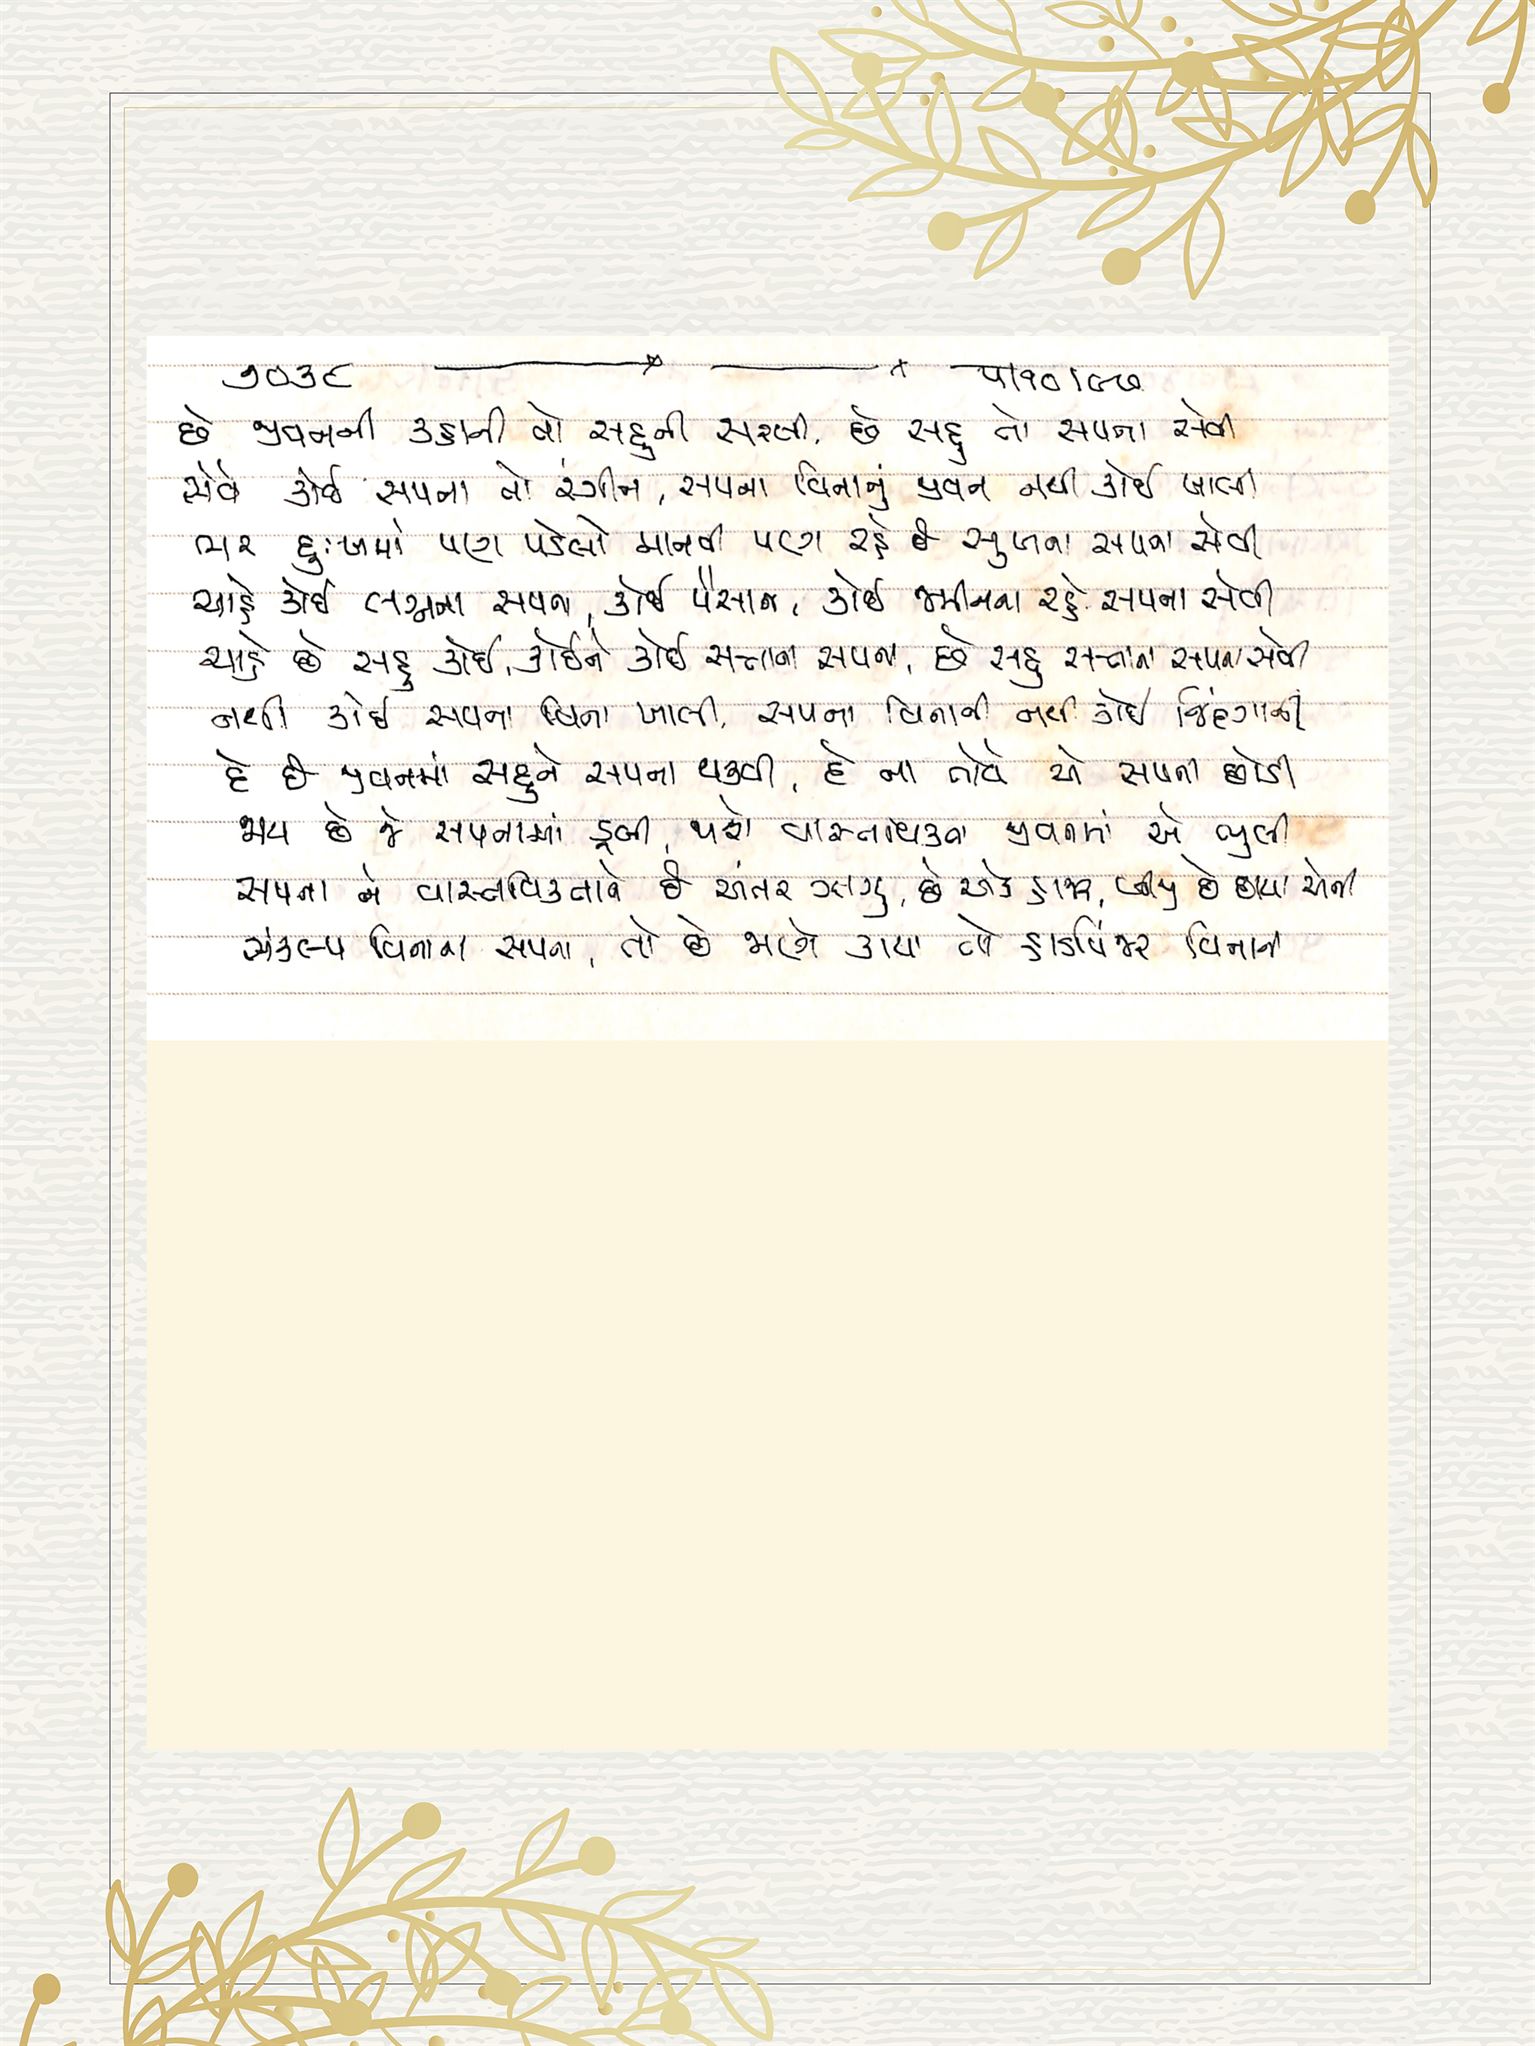 ૭૦૩૯ ૫।૧૦।૯૭
છે જીવનની કહાની તો સહુની સરખી, છે સહુ તો સપના સેવી
સેવે કોઈ સપના તો રંગીન, સપના વિનાનું જીવન નથી કોઈ ખાલી
ભર દુઃખમાં પણ પડેલો માનવી પણ રહે છે સુખના સપના સેવી
ચાહે કોઈ લગ્નના સપના, કોઈ પૈસાના, કોઈ જમીનના રહે સપના સેવી
ચાહે છે સહુ કોઈ, કોઈને કોઈ સત્તાના સપના, છે સહુ સત્તાના સપના સેવી
નથી કોઈ સપના વિના ખાલી, સપના વિનાની નથી કોઈ જિંદગાની
દે છે જીવનમાં સહુને સપના થકવી, દે ના તોયે એ સપના છોડી
જાય છે જે સપનામાં ડૂબી, જાશે વાસ્તવિકતા જીવનમાં એ ભુલી
સપના ને વાસ્તવિકતાને છે અંતર ઝાઝુ, છે એક કાજળ, બીજી છે છાયા એની
સંકલ્પ વિનાના સપના, તો છે જાણે કાયા તો હાડપિંજર વિનાની